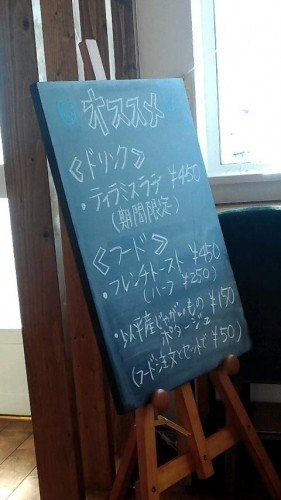 オススメ
《ドリンク》
・ティラミスラテ ¥450
(期間限定)
《フード》
・フレンチトースト ¥450
(ハーフ ¥250)
・以平産じゃがいもの ¥150
ポタージュ
(フード注文とセットで ¥50)